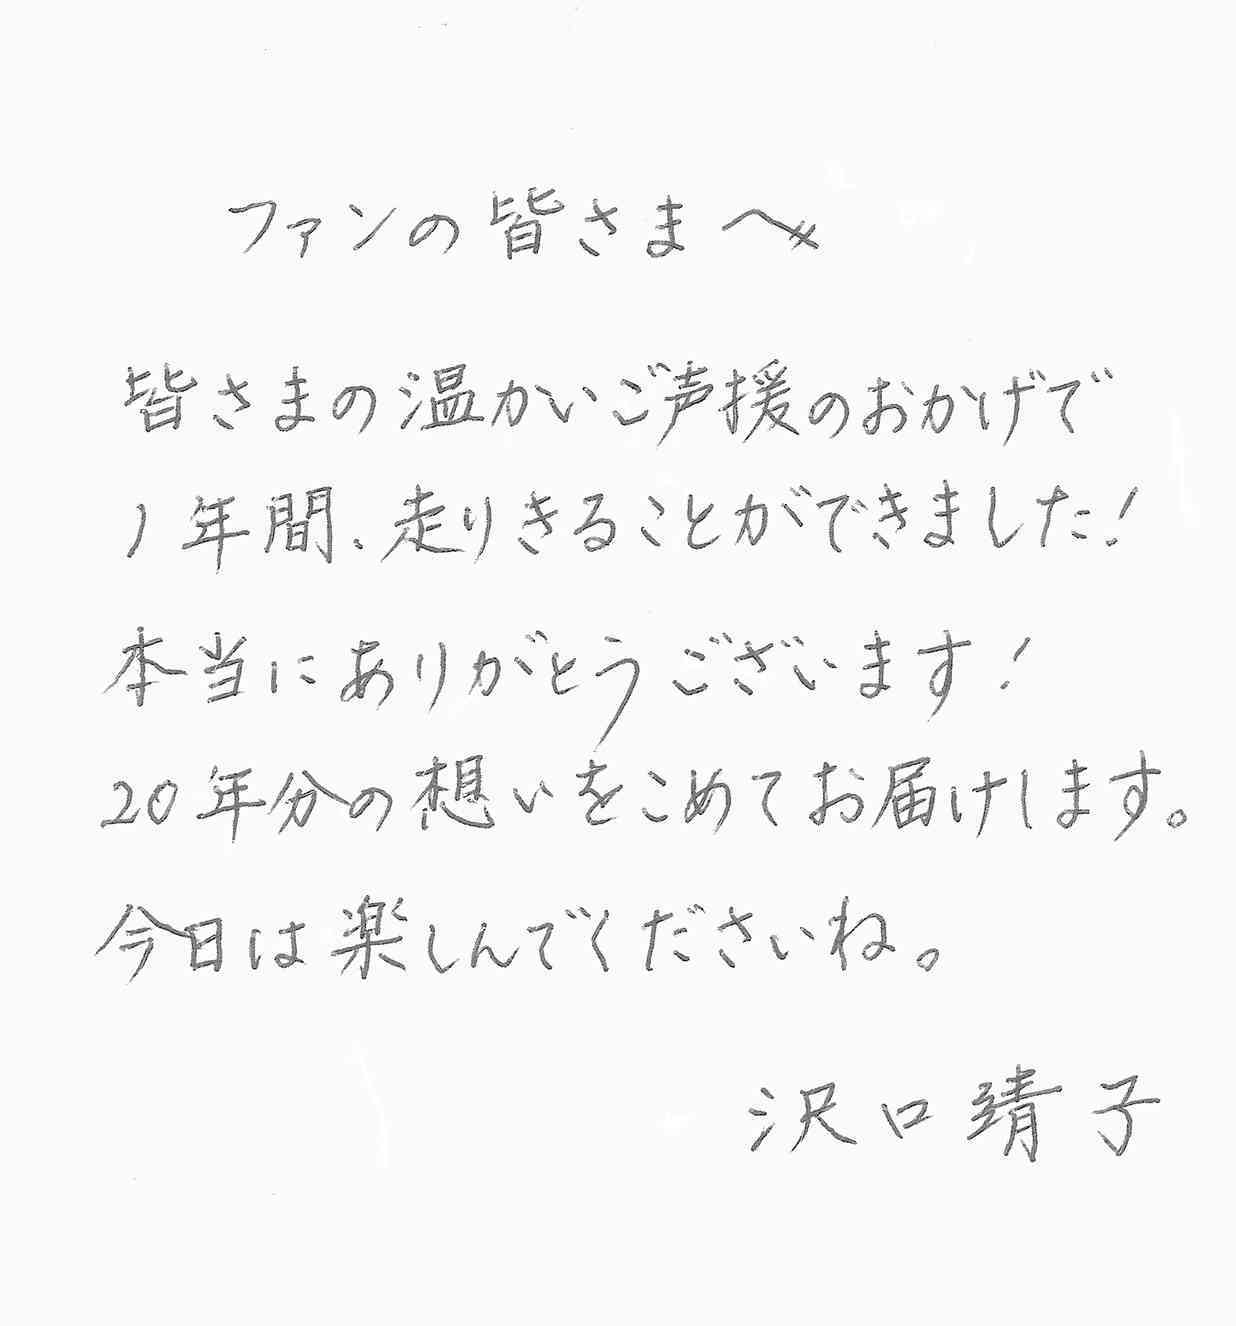 ファンの皆さまへ
皆さまの温かいご声援のおかげで
1年間、走りきることができました!
本当にありがとうございます!
20年分の想いをこめてお届けします。
今日は楽しんでくださいね。
沢口靖子